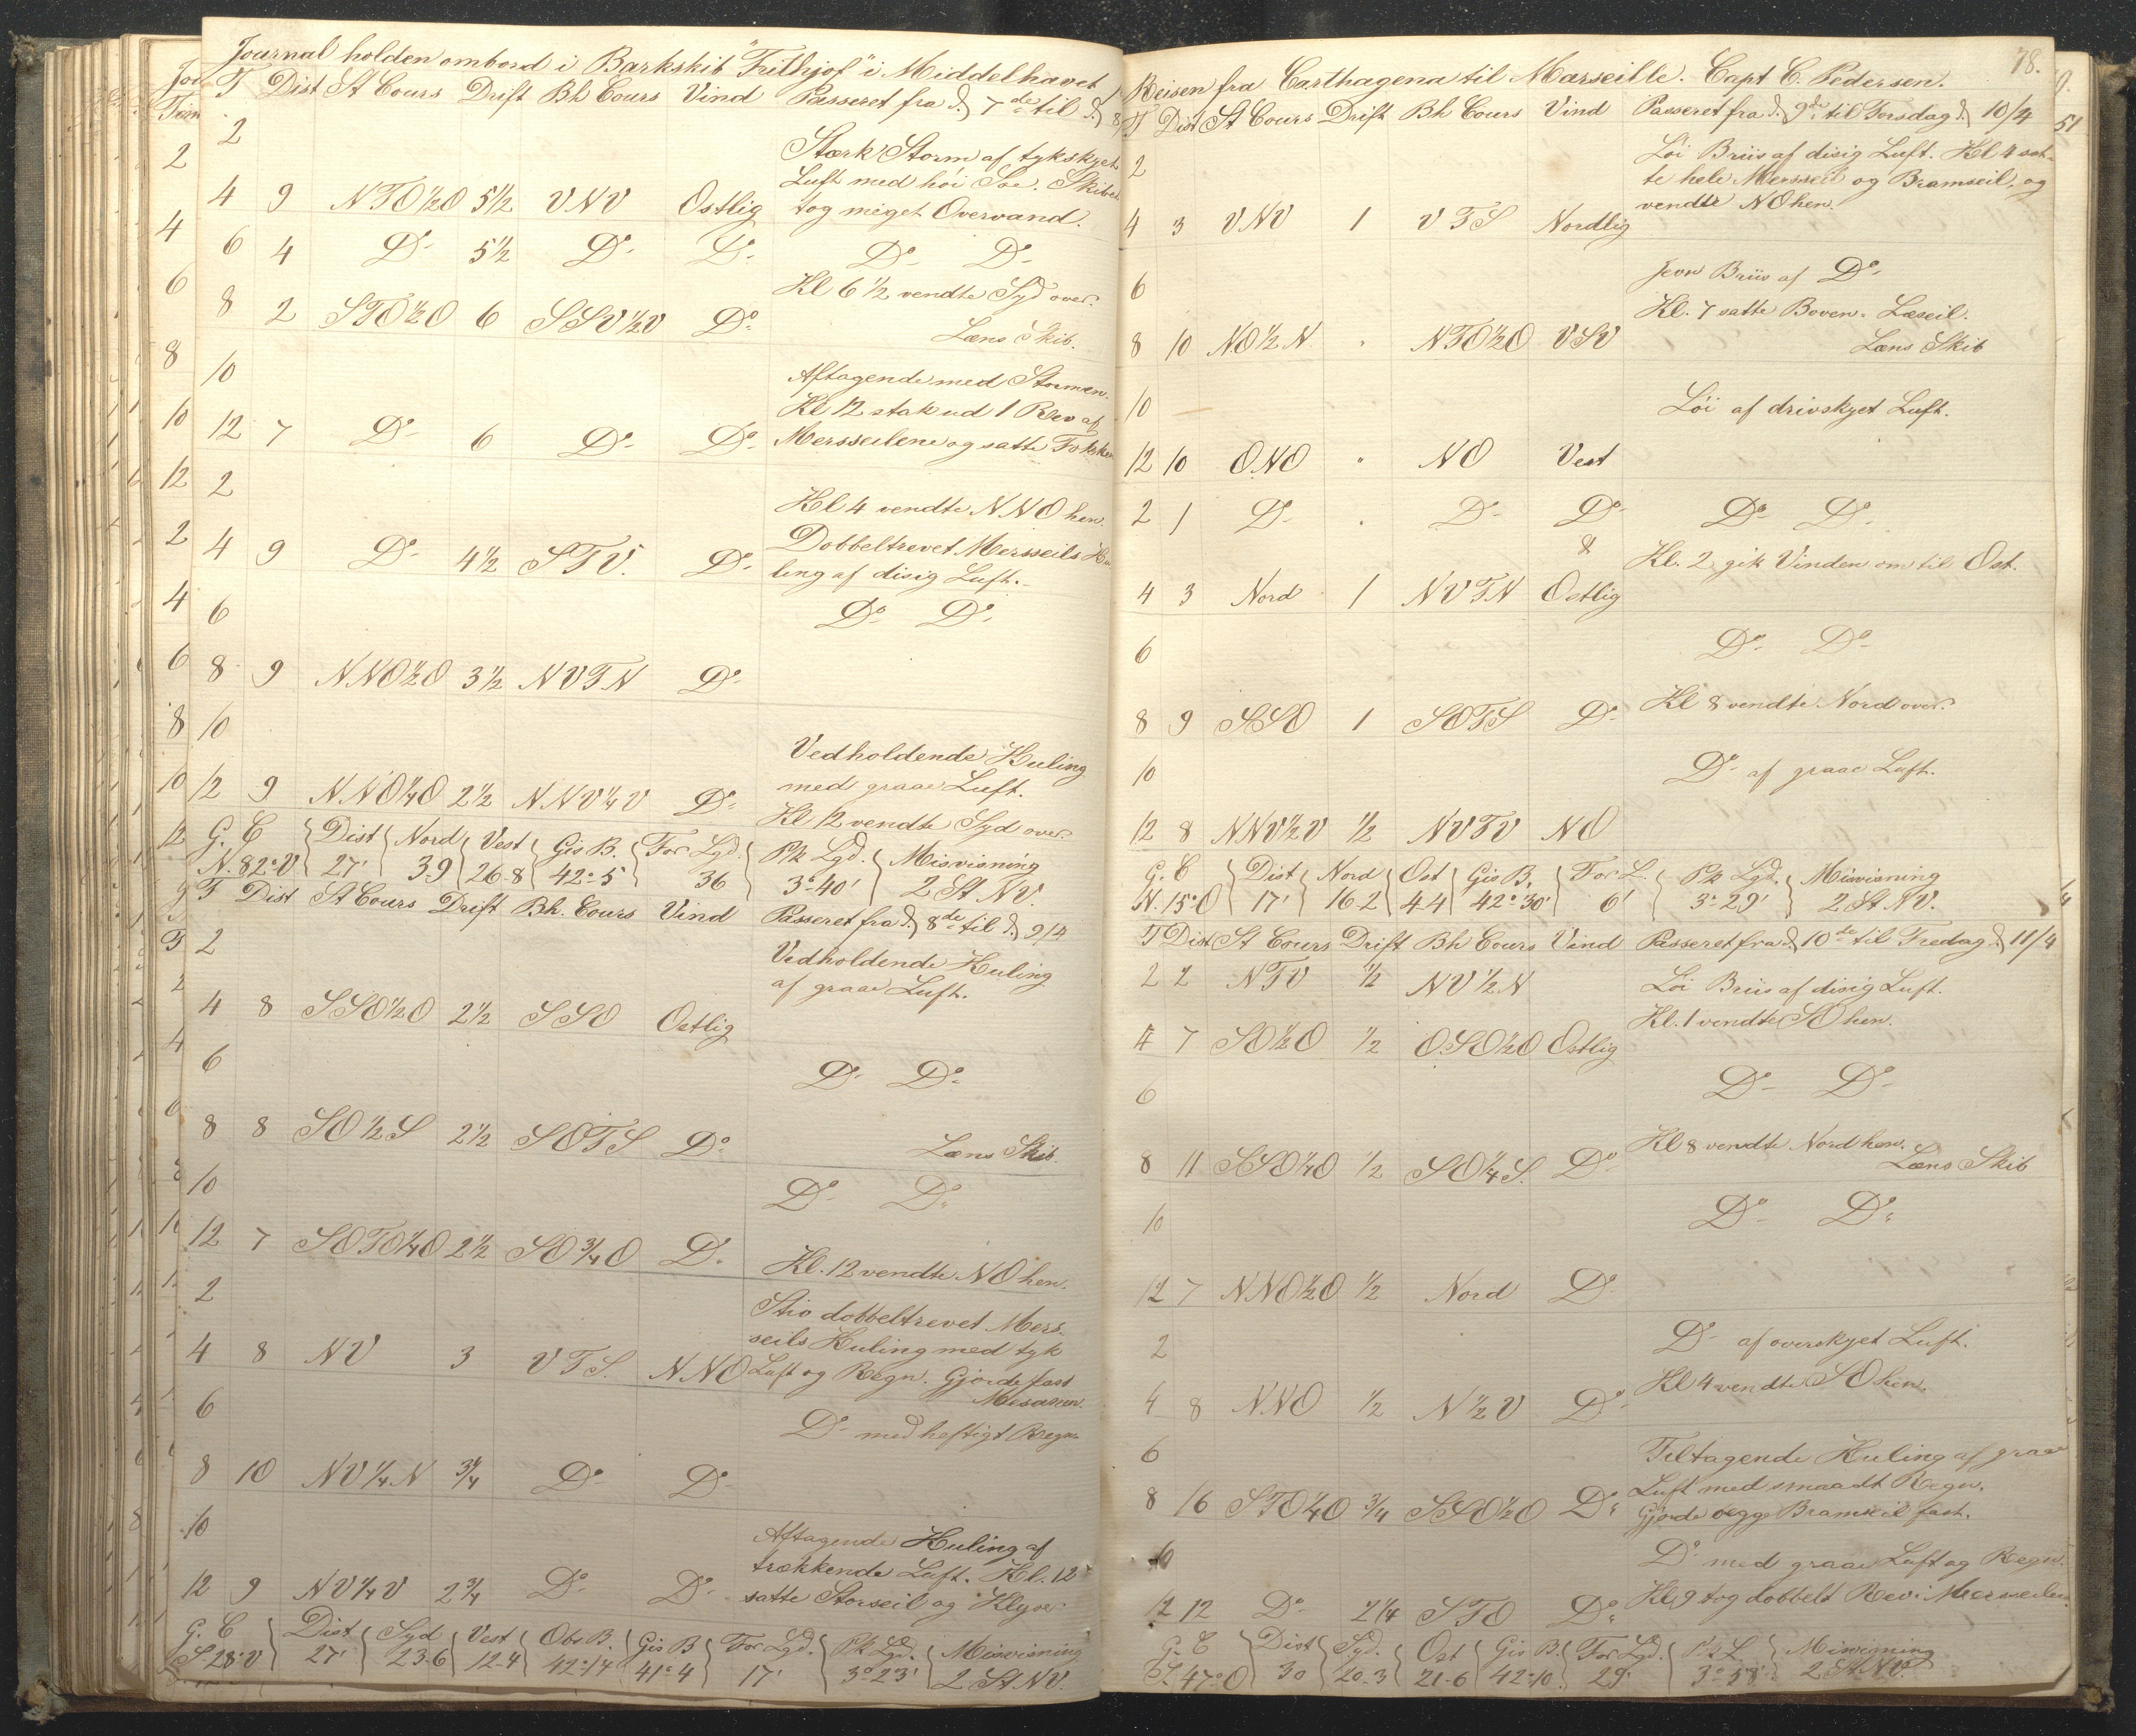 Journal holden ombord i Barkskib "Frithjof" i Middelhavet
T Dist St Cours Drift Bh Cours Vind Passeret fra d. 7de til d. 8
2
Stærk Storm af tykskyet
Luft med höi Söe. Skibet
4 9 NTO½O 5½ VNV Ostlig tog meget Overvand.
6 4 Do 5½ Do Do Do Do
Kl 6½ vendte Syd over.
8 2 STO½O 6 SSV½V Do
Læns Skib.
10
Aftagende med Stormen.
Kl 12 stak ud 1 Rev af
12 7 Do 6 Do Do Mersseilene og satte
2
Kl 4 vendte NNO hen.
Dobbeltrevet Mersseils
4 9 Do 4½ STV. Do ling af disig Luft.
6 Do Do
8 9 NNO½O 3½ NVTN Do
10
Vedholdende Kuling
med graae Luft.
12 9 NNO¼O 2½ NNV¼V Do
Kl 12 vendte Syd over.
G. C Dist Nord Vest Gis B. For Lgd. Pk Lgd. Misvisning
N.82°V 27' 3-9 26-8 42°-5 36 3°-40' 2 St NV.
T Dist St Cours Drift Bh. Cours Vind Passeret fra d. 8de til d. 9/4
2
Vedholdende Kuling
af graae Luft.
4 8 SSO½O 2½ SSO Ostlig
6 Do Do
8 8 SO½S 2½ SOTS Do Læns Skib.
10 Do Do
12 7 SOTO¼O 2½ SO¾O Do Kl. 12 vendte NO hen.
2
Stiv dobbeltrevet Mers-
seils Kuling med tyk
4 8 NV 3 VTS. NNO Luft og Regn. Gjorde fast
Mesanen.
6 Do med heftigt Regn
8 10 NV¼N 3¼ Do Do
10
Aftagende Kuling af
trækkende Luft. Kl. 12
12 9 NV¼V 2¾ Do Do satte Storseil og Klyver
G. C Dist Syd Vest Obs B. Gis B For Lgd. Pk Lgd. Misvisning
S 28°V 27' 23-6 12-4 42°-14 41°-4 17' 3°23' 2 St NV.
78.
Reisen fra Carthagena til Marseille. Capt C. Pedersen.
T Dist St Cours Drift Bh Cours Vind Passeret fra d. 9de til Torsdag d. 10/4
2
Löi Briis af disig Luft. Kl 4 sat-
te hele Mersseil og Bramseil, og
vendte NO hen.
4 3 VNV 1 VTS Nordlig
6
Jevn Briis af Do
Kl. 7 satte Boven- Læseil.
8 10 NO½N " NTO½O VSV Læns Skib
10 Löi af drivskyet Luft.
12 10 ONO " NO Vest
2 1 Do " Do Do Do Do
&
Kl. 2 gik Vinden om til Ost.
4 3 Nord 1 NVTN Ostlig
6 Do Do
Kl 8 vendte Nord over.
8 9 SSO 1 SOTS Do
10 Do af graae Luft.
12 8 NNV½V ½ NVTV NO
G. C Dist Nord Ost Gis B. For L. Pk Lgd. Misvisning
N.15°O 17' 16-2 4-4 42°30' 6' 3°-29' 2 St NV.
T Dist St Cours Drift Bh Cours Vind Passeret fra d. 10de til Fredag d. 11/4
2 2 NTV ½ NV½N Löi Briis af disig Luft.
Kl. 1 vendte SO hen.
4 7 SO½O ½ OSO½O Ostlig
6 Do Do
Kl 8 vendte Nord hen.
8 11 SSO¼O ½ SO¼S. Do Læns Skib
10 Do Do
12 7 NNO½O ½ Nord Do
2 Do af overskyet Luft.
Kl 4 vendte SO hen.
4 8 NNO ½ N½V Do
6
Tiltagende Kuling af graae
Luft med smaadt Regn.
8 16 STO¼O ¾ SSO½O Do
Gjorde begge Bramseil fast.
10 Do med graae Luft og Regn.
Kl 9 tog dobbelt Rev i Mersseilene
12 12 Do 2¼ STO Do
G. C Dist Syd. Ost Gis B. For Lgd. Pk L. Misvisning
S. 47°O 30 20-3 21-6 42°10. 29' 3°-58' 2 St NV.